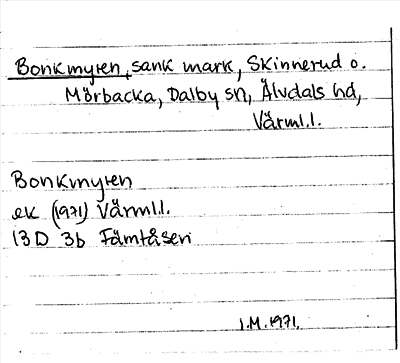 Bonkmyren, sank mark, Skinnerud o.
Mörbacka, Dalby sn, Älvdals hd,
Värml.l.
Bonkmyren
ek (1971) Värml.l.
13D 3b Fämtåsen
I.M. 1971.